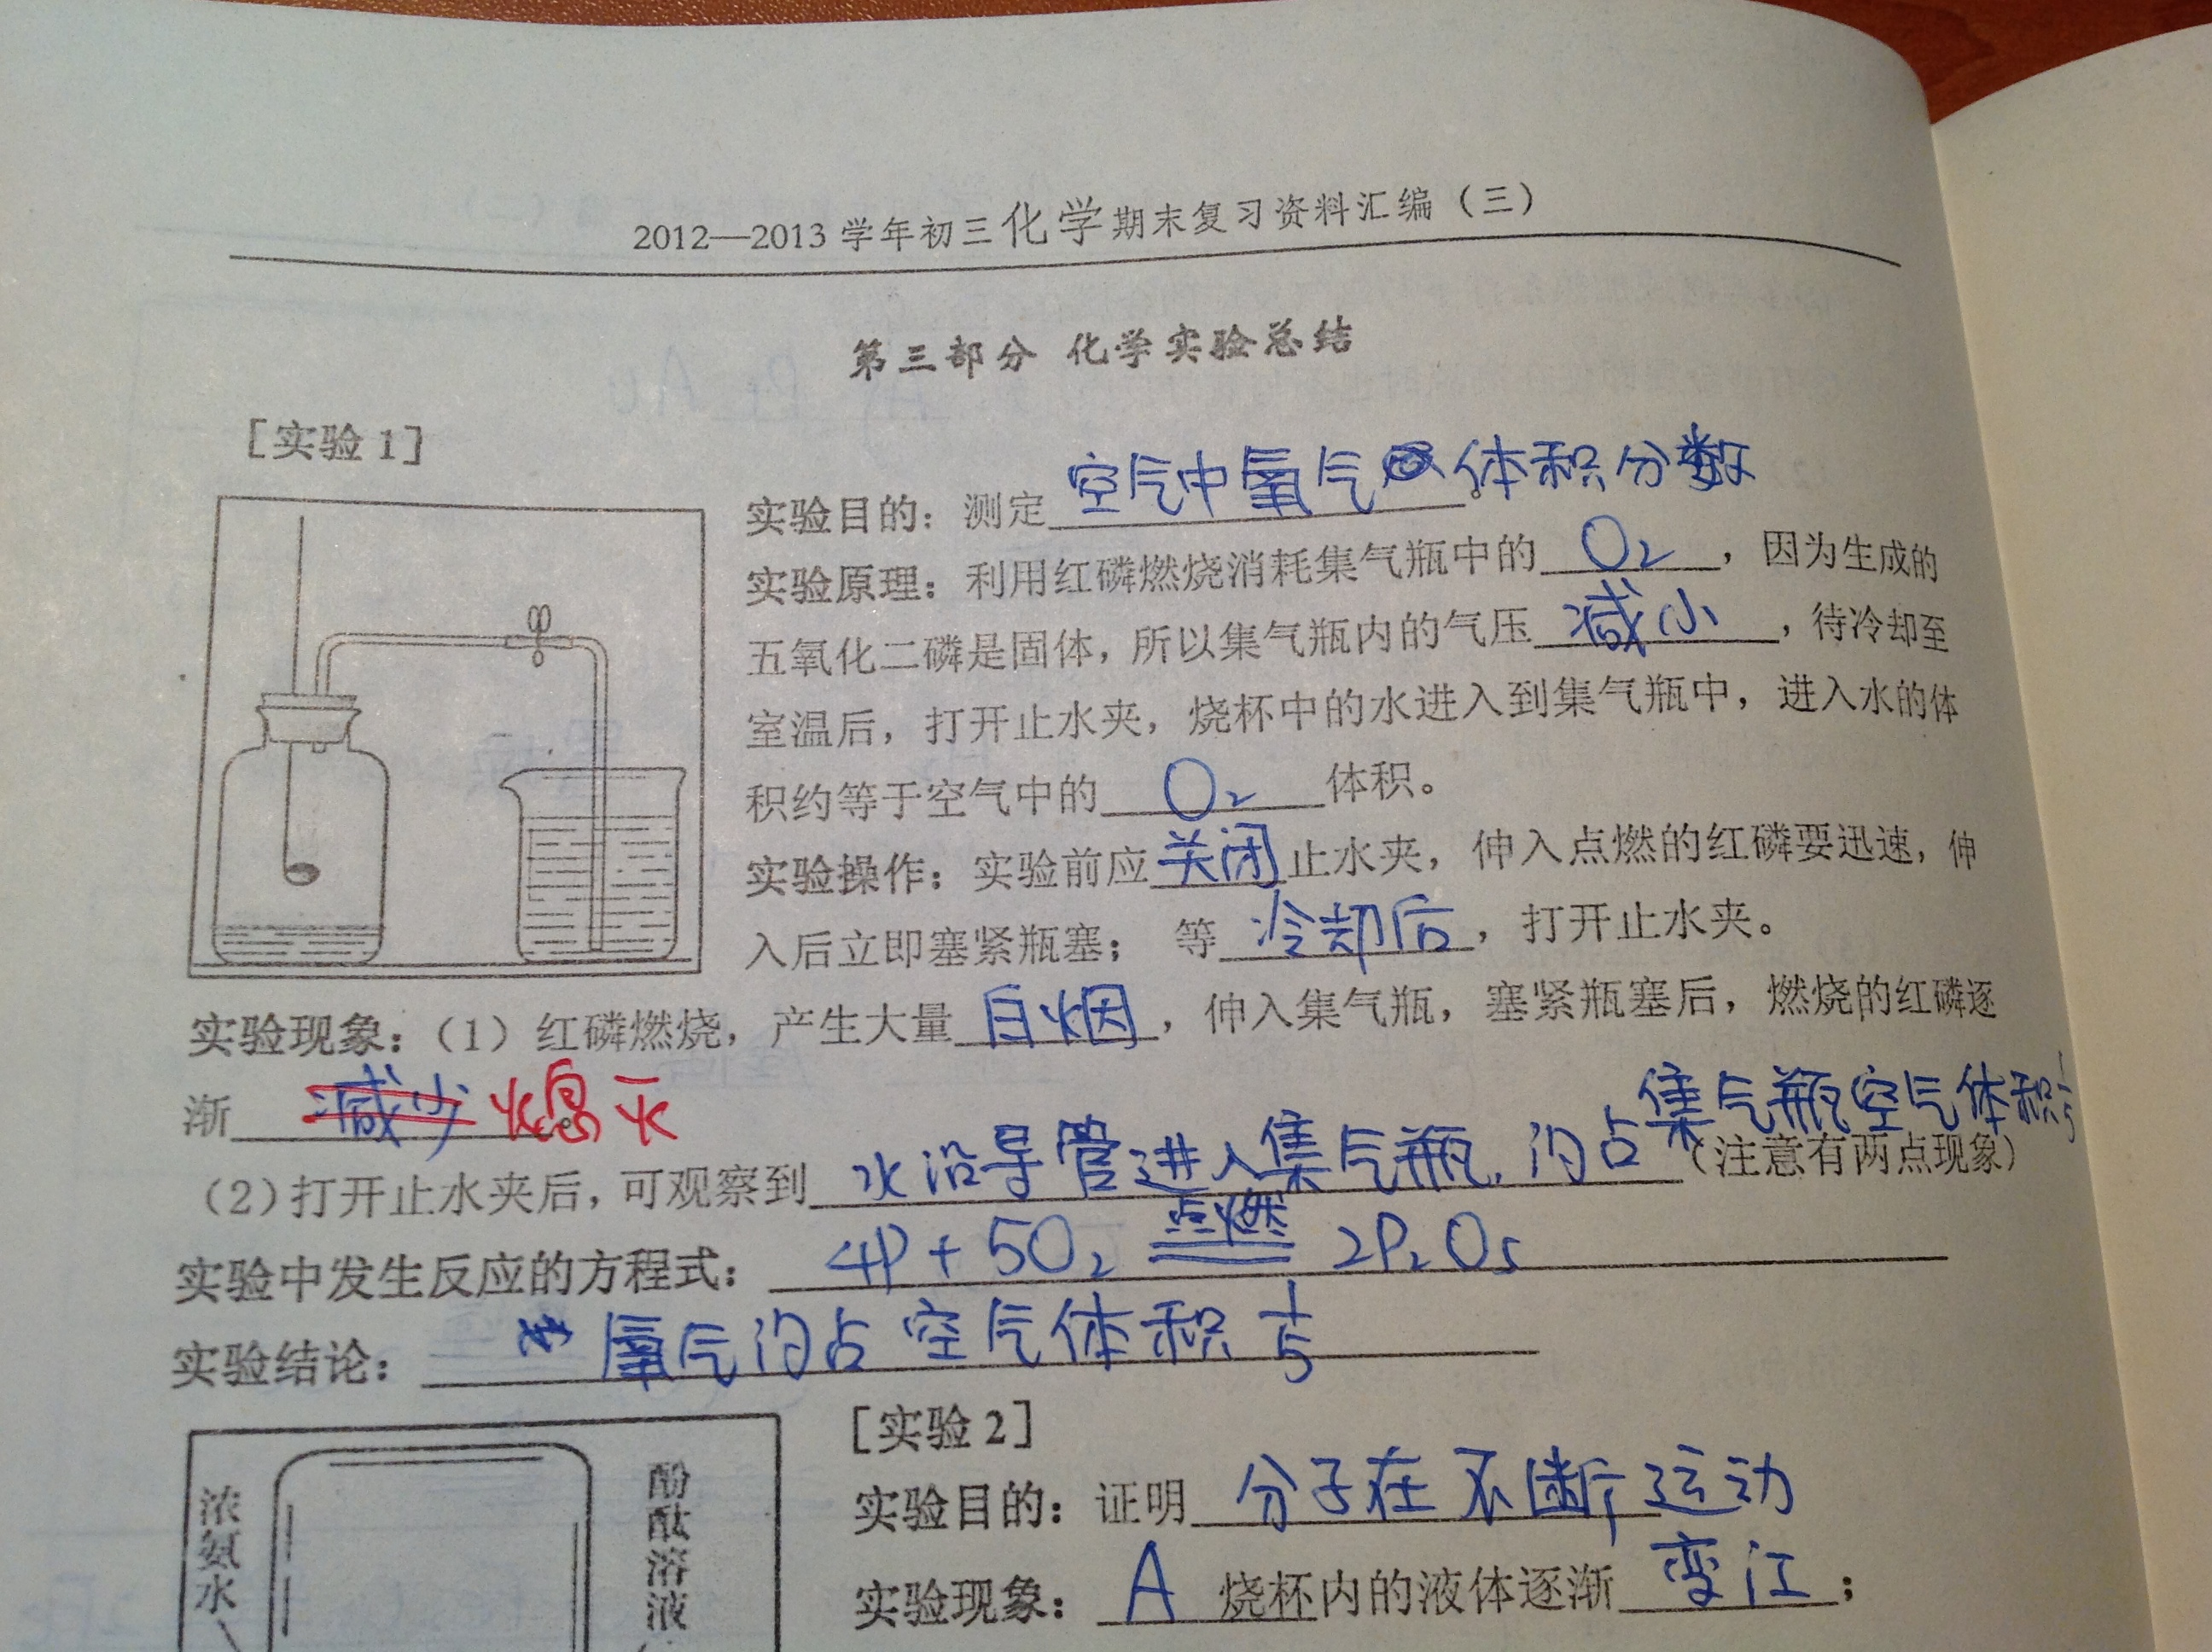 2012—2013 学年初三化学期末复习资料汇编（三）
第三部分 化学实验总结
[实验 1]
实验目的：测定空气中氧气体积分数。
实验原理：利用红磷燃烧消耗集气瓶中的 O₂ ，因为生成的
五氧化二磷是固体，所以集气瓶内的气压 减小 ，待冷却至
室温后，打开止水夹，烧杯中的水进入到集气瓶中，进入水的体
积约等于空气中的 O₂ 体积。
实验操作：实验前应关闭止水夹，伸入点燃的红磷要迅速，伸
入后立即塞紧瓶塞； 等 冷却后 ，打开止水夹。
实验现象：（1）红磷燃烧，产生大量 白烟 ，伸入集气瓶，塞紧瓶塞后，燃烧的红磷逐
渐 减少 熄灭 。
（2）打开止水夹后，可观察到 水沿导管进入集气瓶，约占集气瓶空气体积1/5（注意有两点现象）
实验中发生反应的方程式： 4P + 5O₂ 点燃 2P₂O₅
实验结论： 氧气约占空气体积 1/5
[实验 2]
浓氨水
酚酞溶液
实验目的：证明 分子在不断运动
实验现象： A 烧杯内的液体逐渐 变江 ；